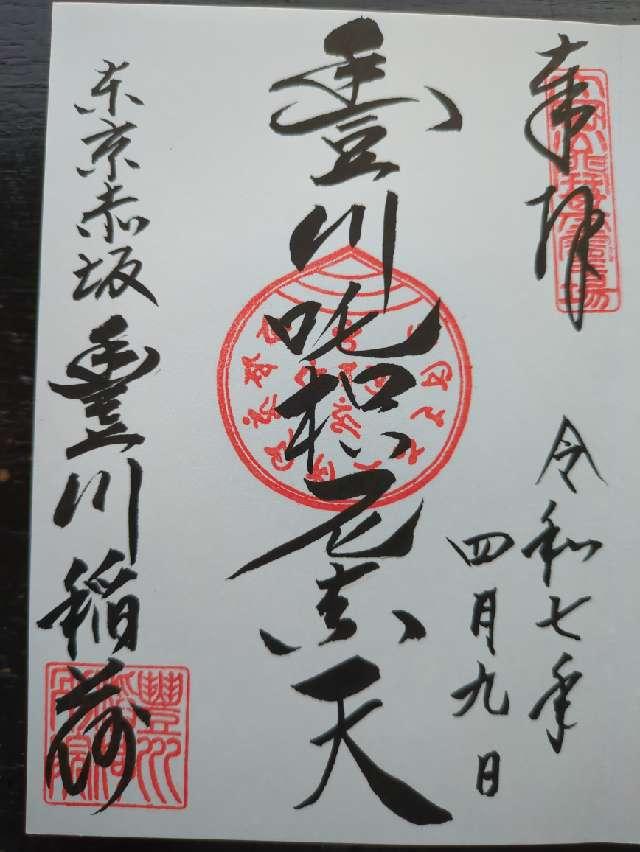 奉拝
令和七年
四月九日
豊川吒枳尼真天
東京赤坂
豊川稲荷